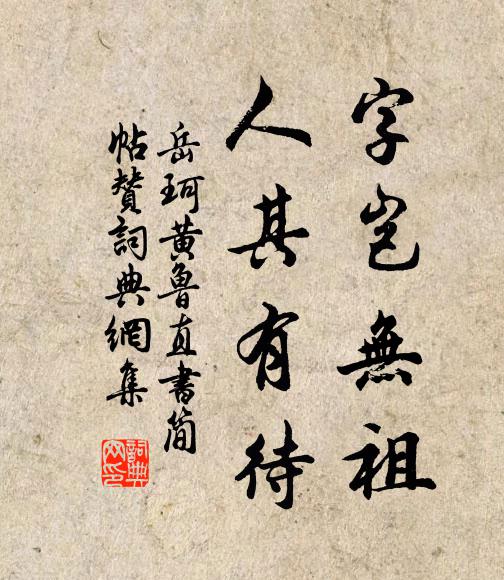 字岂無祖
人其有待
岳珂黄魯直書简
帖贊詞典網集
詞典網印